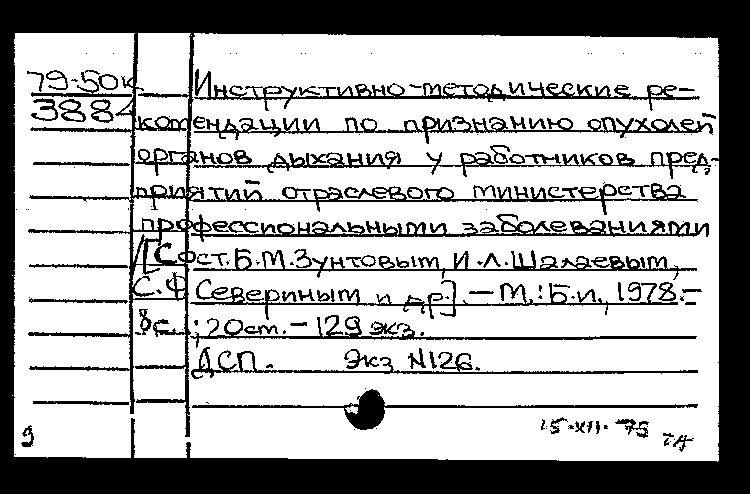 79-50к Инструктивно-методические ре-
3884 комендации по признанию опухолей
органов дыхания у работников пред-
приятий отраслевого министерства
профессиональными заболеваниями
/[Сост. Б.М.Зунтовым, И.Л.Шалаевым,
С.Ф Севериным и др.]. - М.: Б.и., 1978.-
8с.; 20см. - 129 экз.
ДСП. Экз N126.
9 15-XII-79